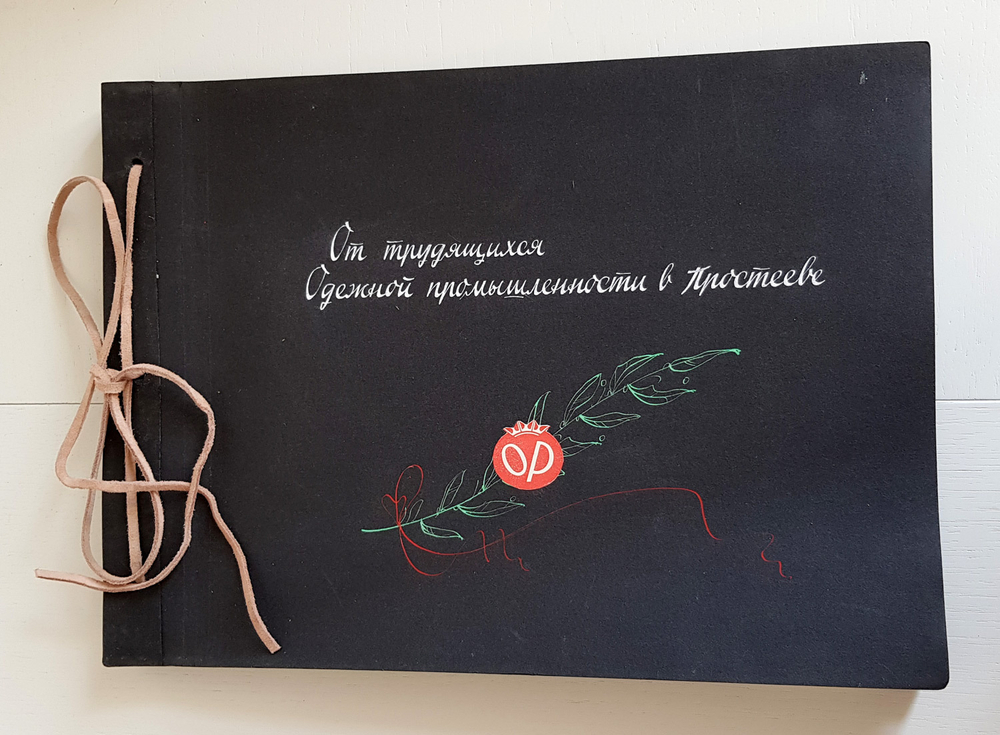 От трудящихся
Одежной промышленности в Простееве
OP